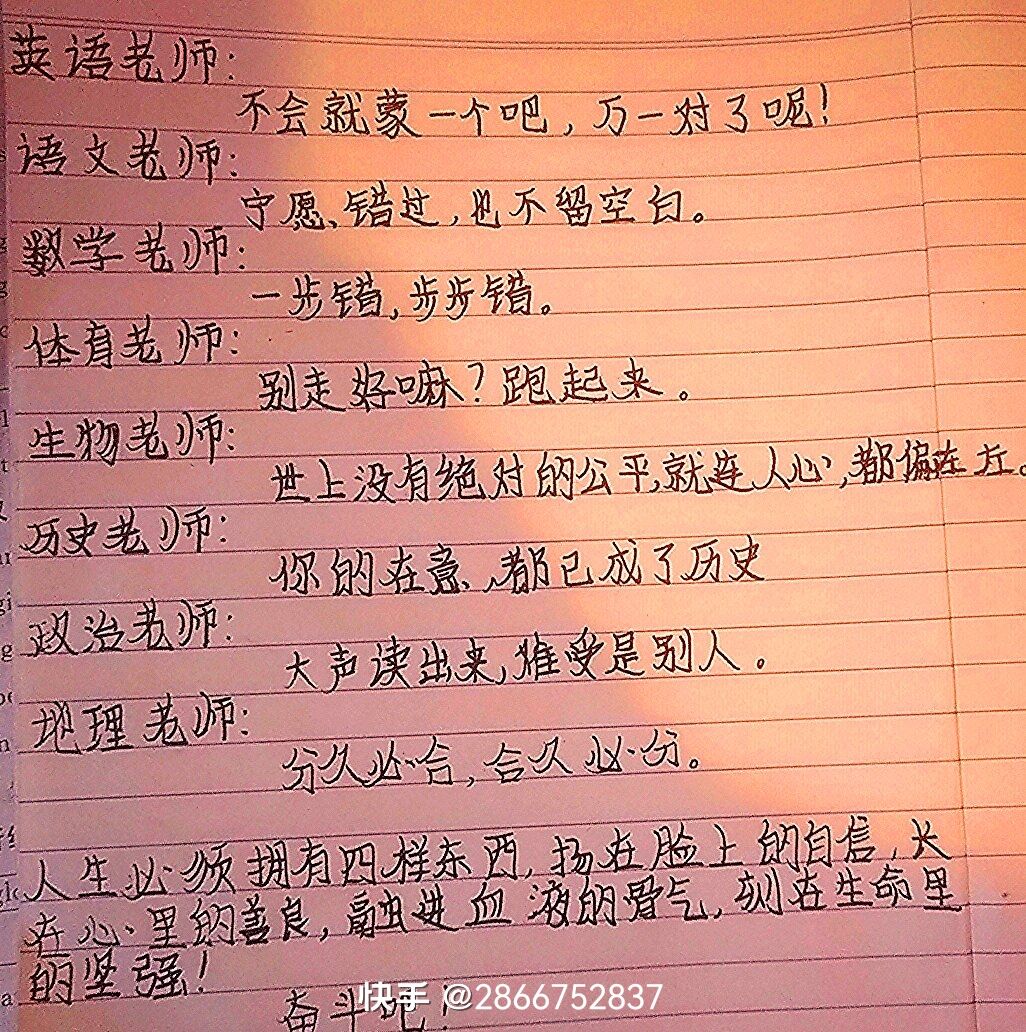 英语老师:
不会就蒙一个吧,万一对了呢!
语文老师:
宁愿、错过,也不留空白。
数学老师:
一步错,步步错。
体育老师:
别走好嘛?跑起来。
生物老师:
世上没有绝对的公平,就连人心,都偏在左。
历史老师:
你的在意,都已成了历史
政治老师:
大声读出来,难受是别人。
地理老师:
分久必合,合久必分。
人生必须拥有四样东西,扬在脸上的自信,长
在心里的善良,融进血液的骨气,刻在生命里
的坚强!
奋斗吧!
快手 @2866752837